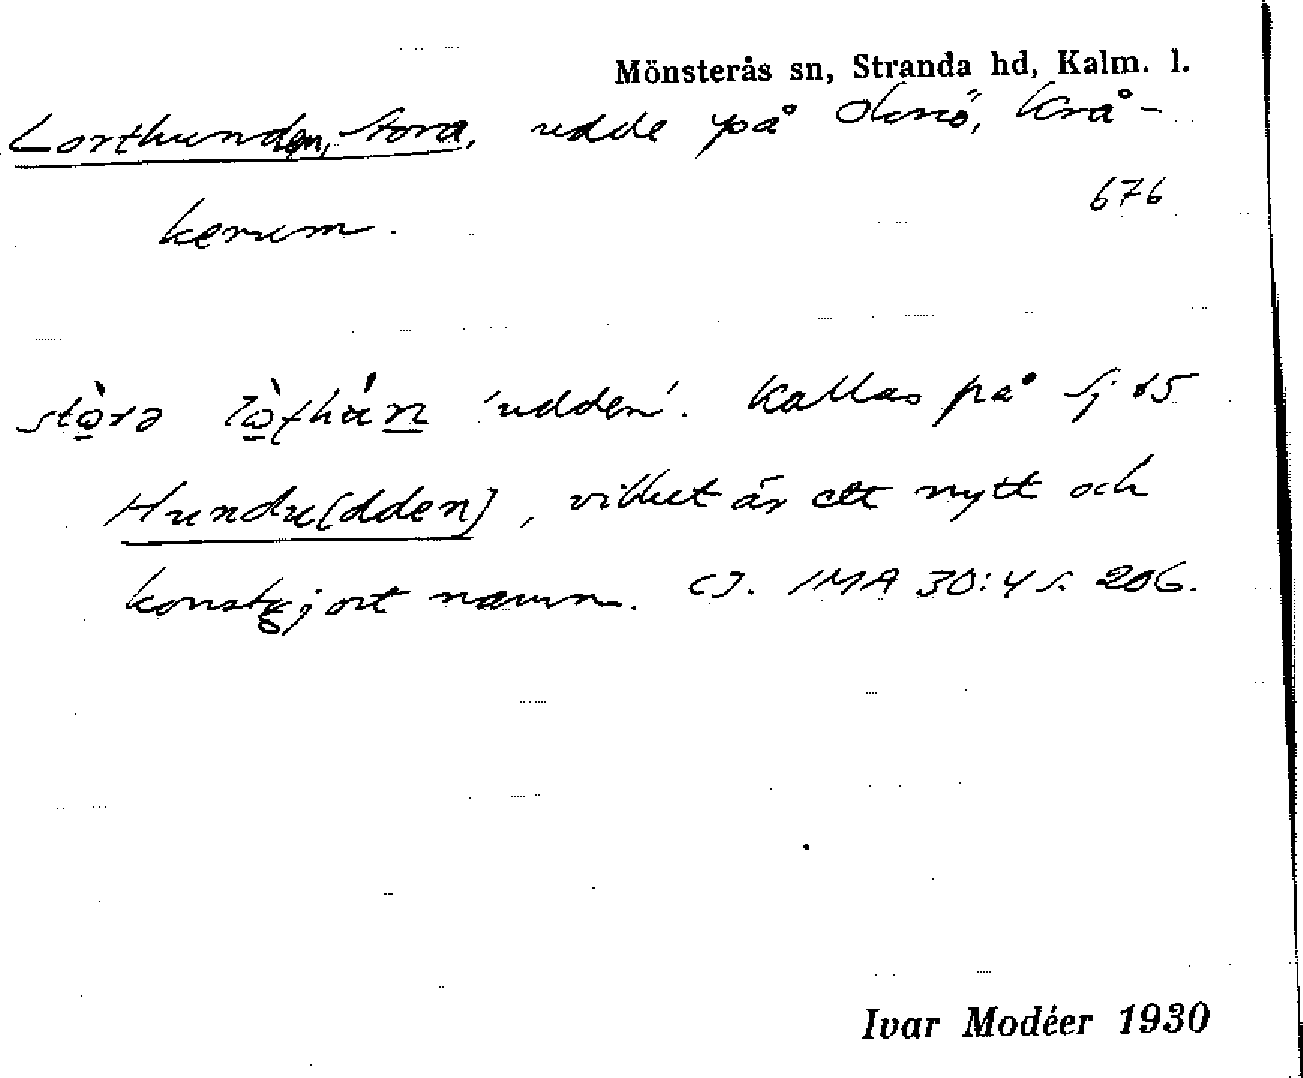 Mönsterås sn, Stranda hd, Kalm. l.
Lorthunden, Stora, udde på Oknö, Krå-
kerum. 676
stọ̀rə lọ̀ṭhúṇ 'udden'. Kallas på Sj 15
Hundu[dden], vilket är ett nytt och
konstgjort namn. Cf. IMA 30:4 s. 206.
Ivar Modéer 1930